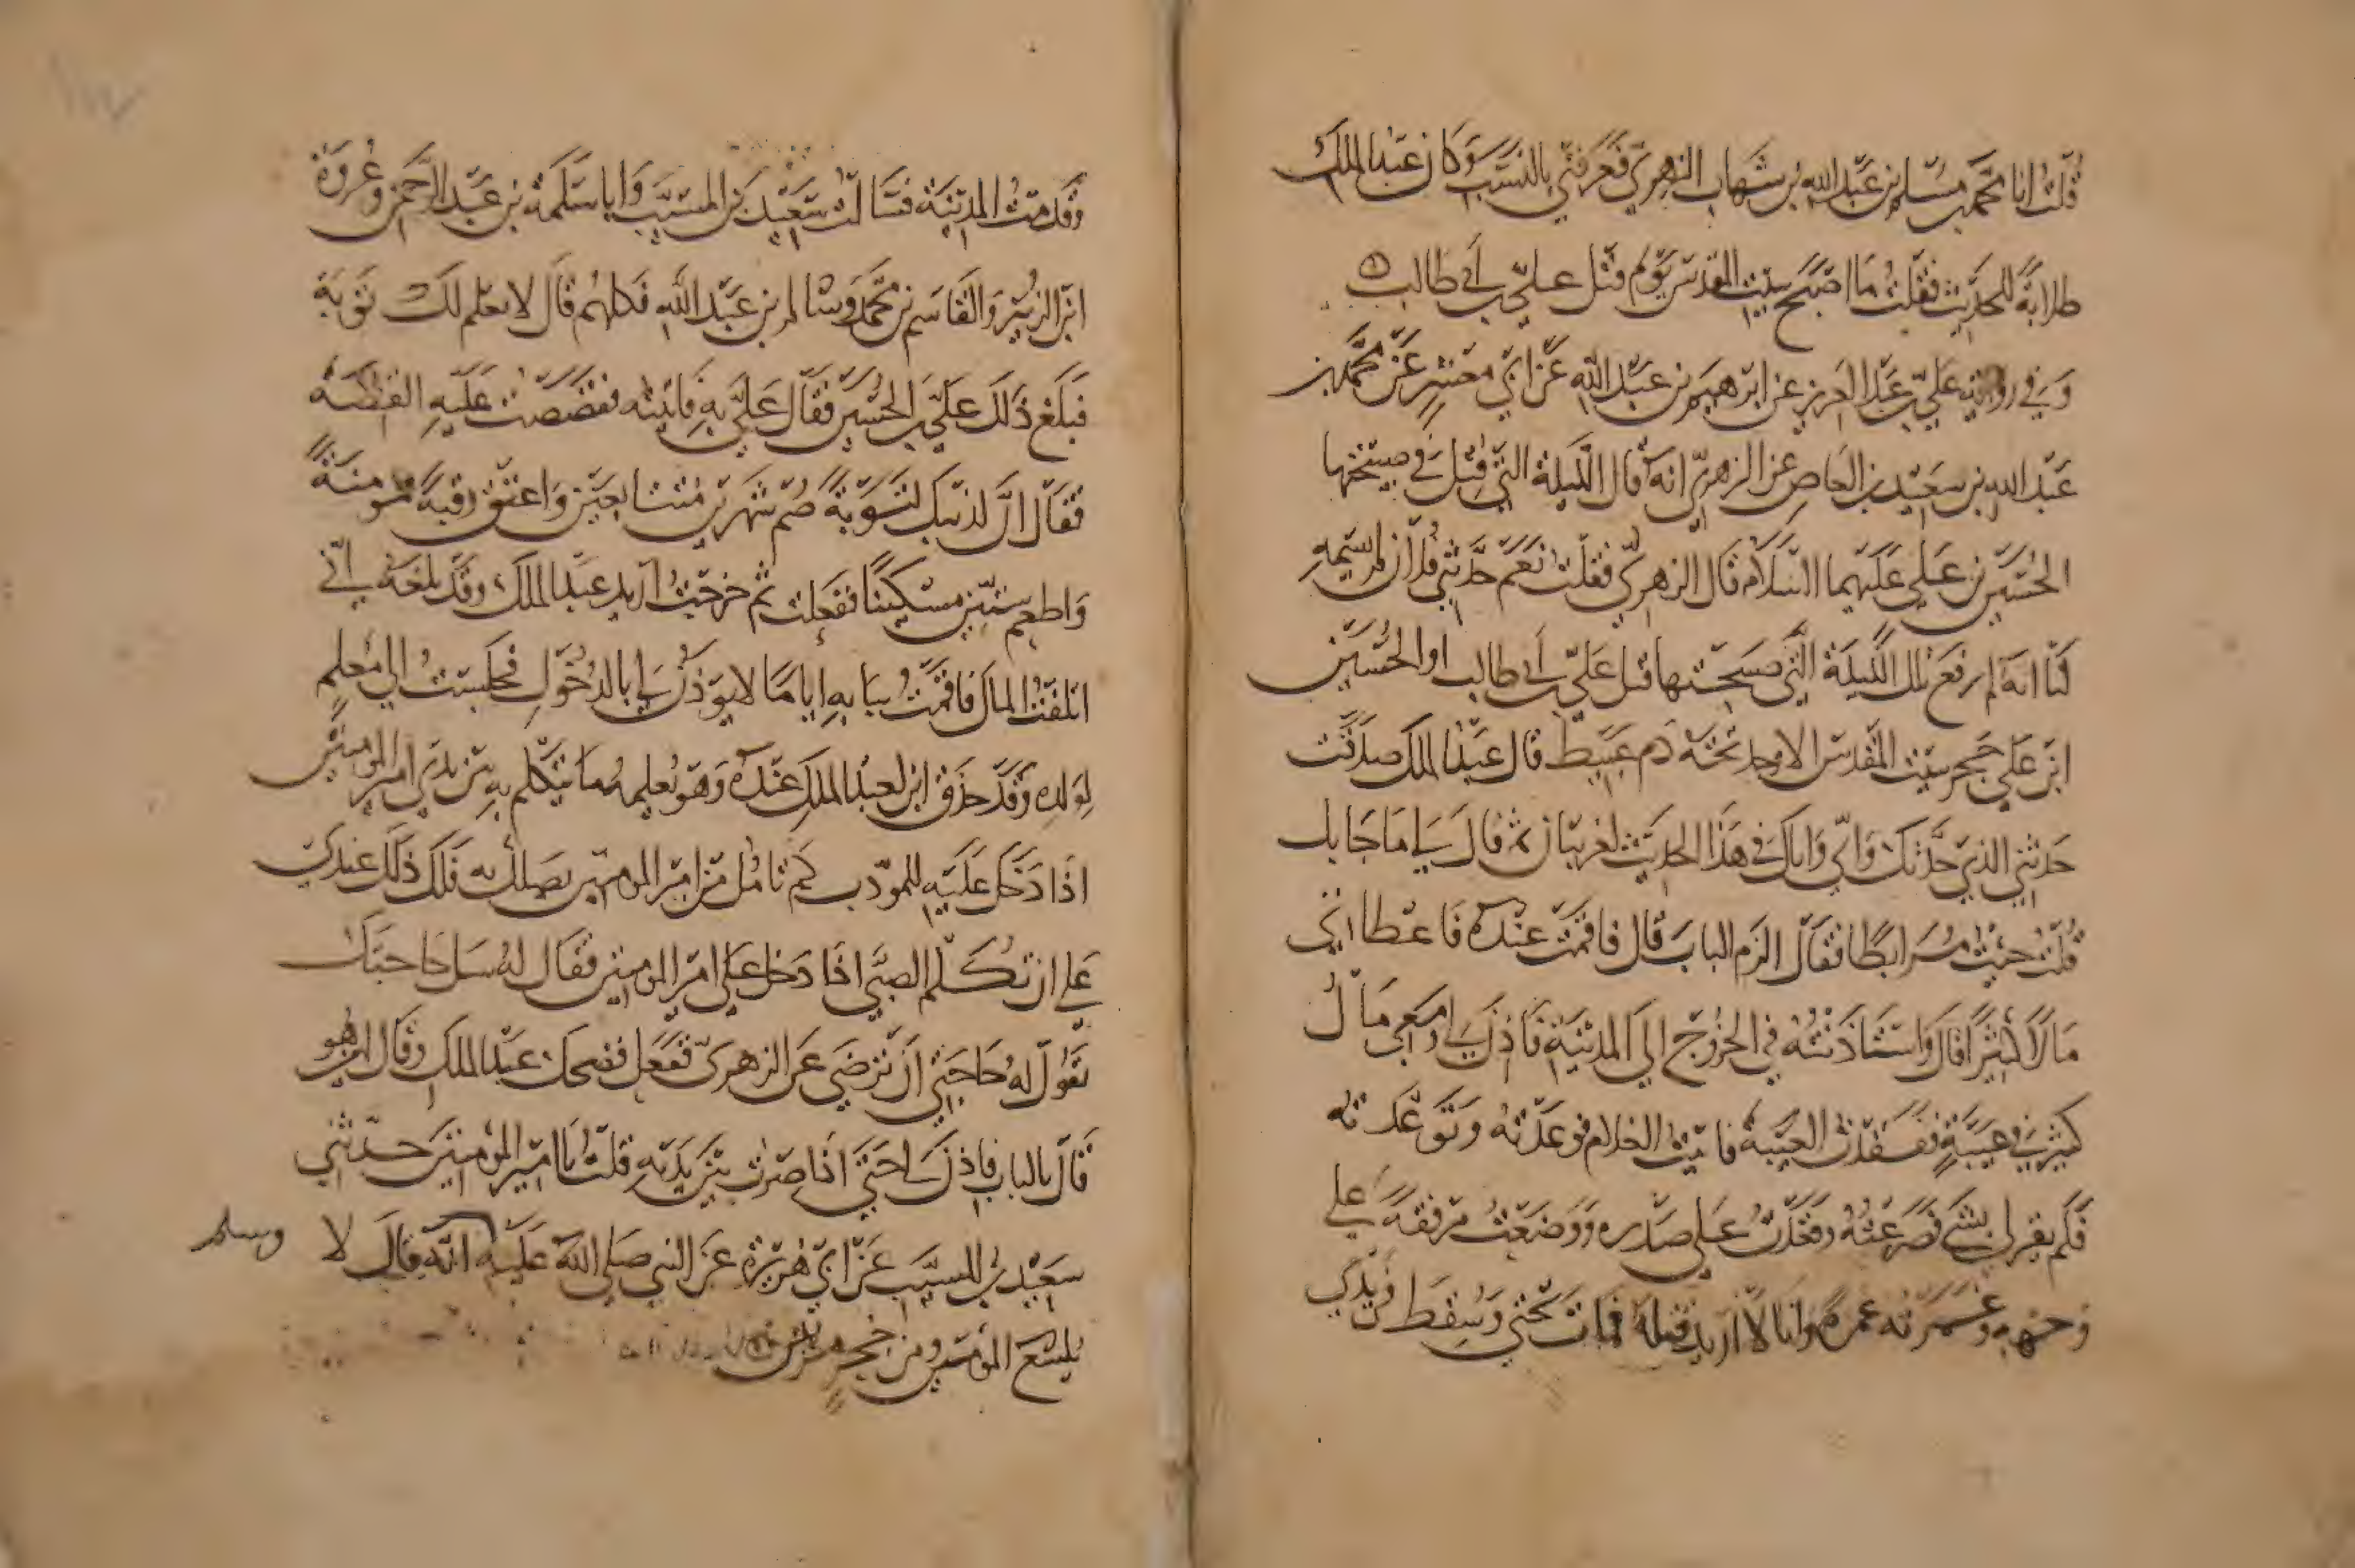 قُلْتُ انا محمّد بن مسْلم بن عبْد الله بن شهاب الزهري فعرفني بالنسب وكان عبد الملك
طلابةً للحديث فقلت ما اصبح ببيت المقدس يوم قتل علي بن أبي طالب
وفي رواية علي بن عبد العزيز عن ابرهيم بن عبد الله عن ابي معشر عن محمد بن
عبد الله بن سعيد بن العاص عن الزهري انه قال الليلة التي قتل في صبيحتها
الحسين بن علي عليهما السلام قال الزهري فقلت نعم حدثني فلان لم يسمه
لنا انه لم يرفع تلك الليلة التي صبيحتها قتل علي بن أبي طالب او الحسين
ابن علي حجر ببيت المقدس الا وجد تحته دم عبيط قال عبد الملك صدقت
حدثني الذي حدثك واني واياك في هذا الحديث لغريبان ثم قال لي ما جا بك
قلت جئت مرابطا فقال الزم الباب قال فاقمت عنده فاعطاني
مالا كثيرا قال واستاذنته في الخروج الي المدينة فاذن لي ومعي مال
كثير في عيبة ففقدت العيبة فاتيت الغلام فوعدته وتوعدته
فلم يقر لي بشي فصرعته وقعدت على صدره ووضعت مرفقه علي
وجهه وغمرته غمرة وانا لا اريد قتله فمات تحتي وسقط في يدي
وقدمت المدينة فسالت سعيد بن المسيب وابا سلمة بن عبد الرحمن وعروة
ابن الزبير والقاسم بن محمد وسالم بن عبد الله فكلهم قال لا نعلم لك توبة
فبلغ ذلك علي بن الحسين فقال علي به فاتيته فقصصت عليه القصة
فقال ان لذنبك لتوبة صم شهرين متتابعين واعتق رقبة مومنة
واطعم ستين مسكينا ففعلت ثم خرجت اريد عبد الملك وقد بلغه اني
اتلفت المال فاقمت ببابه اياما لا يوذن لي بالدخول فجلست الي معلم
لولده وقد حذق ابن لعبد الملك عنده وهو يعلمه ما يتكلم به بين يدي امير المومنين
اذا دخل عليه للمودب كم تامل من امير المومنين يصلك به فلك ذلك عندي
علي ان تكلم الصبي اذا دخل علي امير المومنين فقال له سل حاجتك
يقول له حاجتي ان ترضي عن الزهري ففعل فضحك عبد الملك وقال اين هو
قال بالباب فاذن لي حتي اذا صرت بين يديه قلت يا امير المؤمنين حدثني
سعيد بن المسيب عن ابي هريرة عن النبي صلى الله عليه انه قال لا وسلم
يلسع المؤمن من جحر مرتين